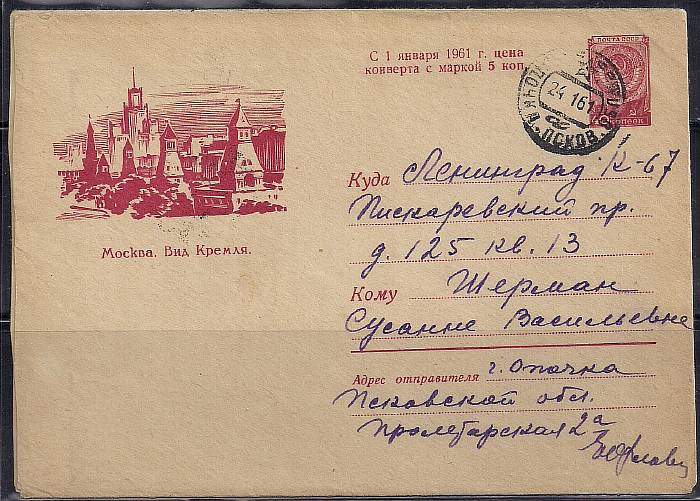 С 1 января 1961 г. цена
конверта с маркой 5 коп.
ПОЧТА СССР
ОПОЧКА ПСКОВ. ОБЛ.
24 1 61
Москва. Вид Кремля.
Куда Ленинград К-67
Пискаревский пр.
д. 125 кв. 13
Кому Шерман
Сусанне Васильевне
Адрес отправителя г. Опочка
Псковской обл.
Пролетарская 2а